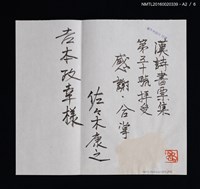 NMTL20160020339 - A2 / 6
漢詩書票集
第五十號拝受
感謝・合掌
佐々木康之
吉本政幸様